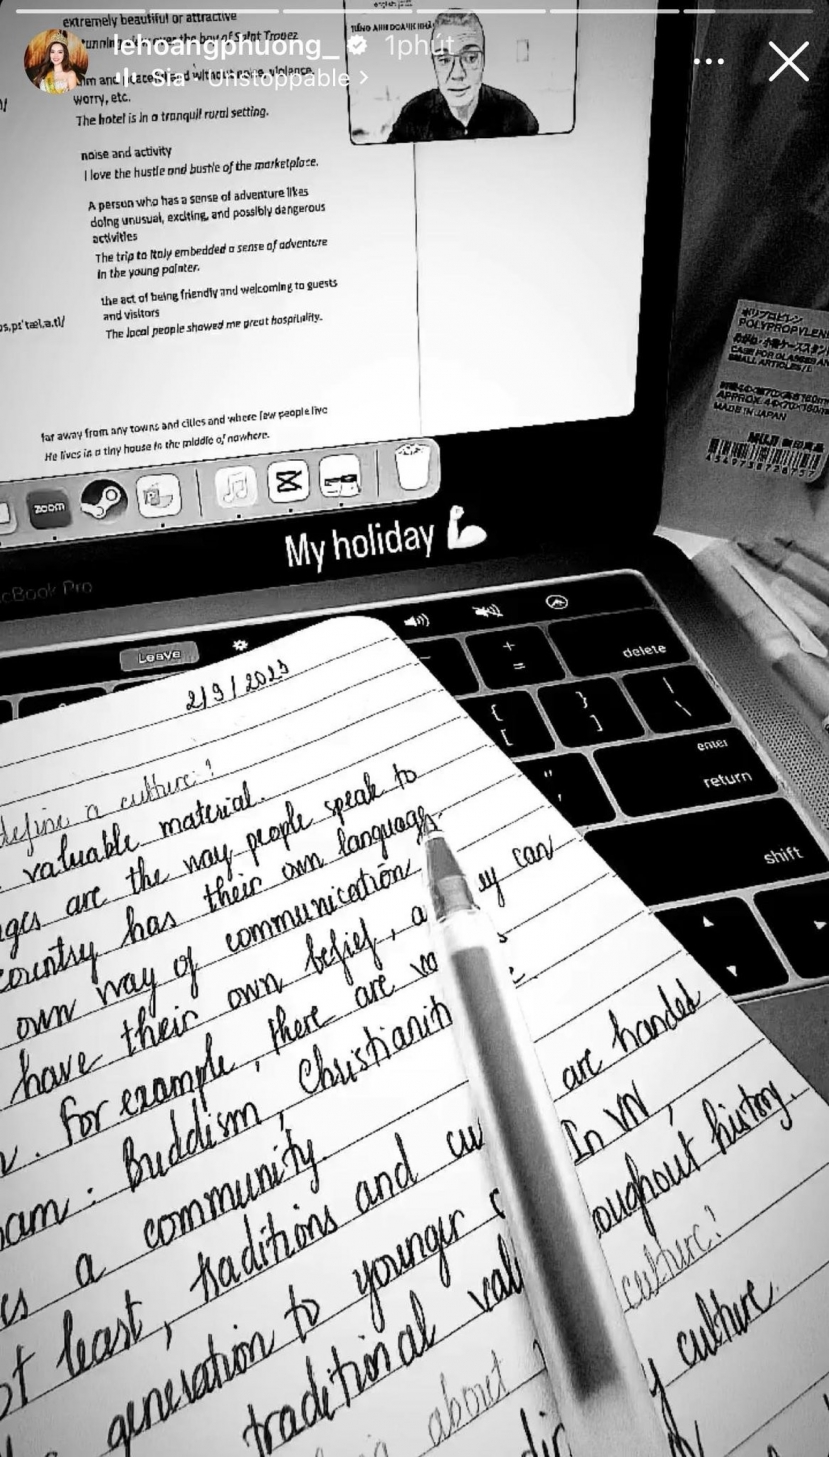 extremely beautiful or attractive
the bay of Saint Tropez
lehoangphuong_ 1phút
Sia · Unstoppable >
worry, etc.
The hotel is in a tranquil rural setting.
noise and activity
I love the hustle and bustle of the marketplace.
A person who has a sense of adventure likes
doing unusual, exciting, and possibly dangerous
activities
The trip to Italy embedded a sense of adventure
in the young painter.
the act of being friendly and welcoming to guests
and visitors
The local people showed me great hospitality.
far away from any towns and cities and where few people live
He lives in a tiny house in the middle of nowhere.
TIẾNG ANH DOANH NHÂN
ポリプロピレン
POLYPROPYLEN
CASE FOR GLASSES AN
SMALL ARTICLES/
MADE IN JAPAN
MUJI 無印良品
zoom
My holiday 💪
cBook Pro
Leave
delete
+
=
{
[
}
]
|
\
"
'
enter
return
shift
2/9/2023
define a culture?
valuable material.
ges are the way people speak to
country has their own language
own way of communication ey can
have their own belief, a
n. For example, there are va
am: Buddism, Christianit
es a community. are handed
t least, traditions and cu In VN,
generation to younger oughout history.
traditional val culture?
about y culture